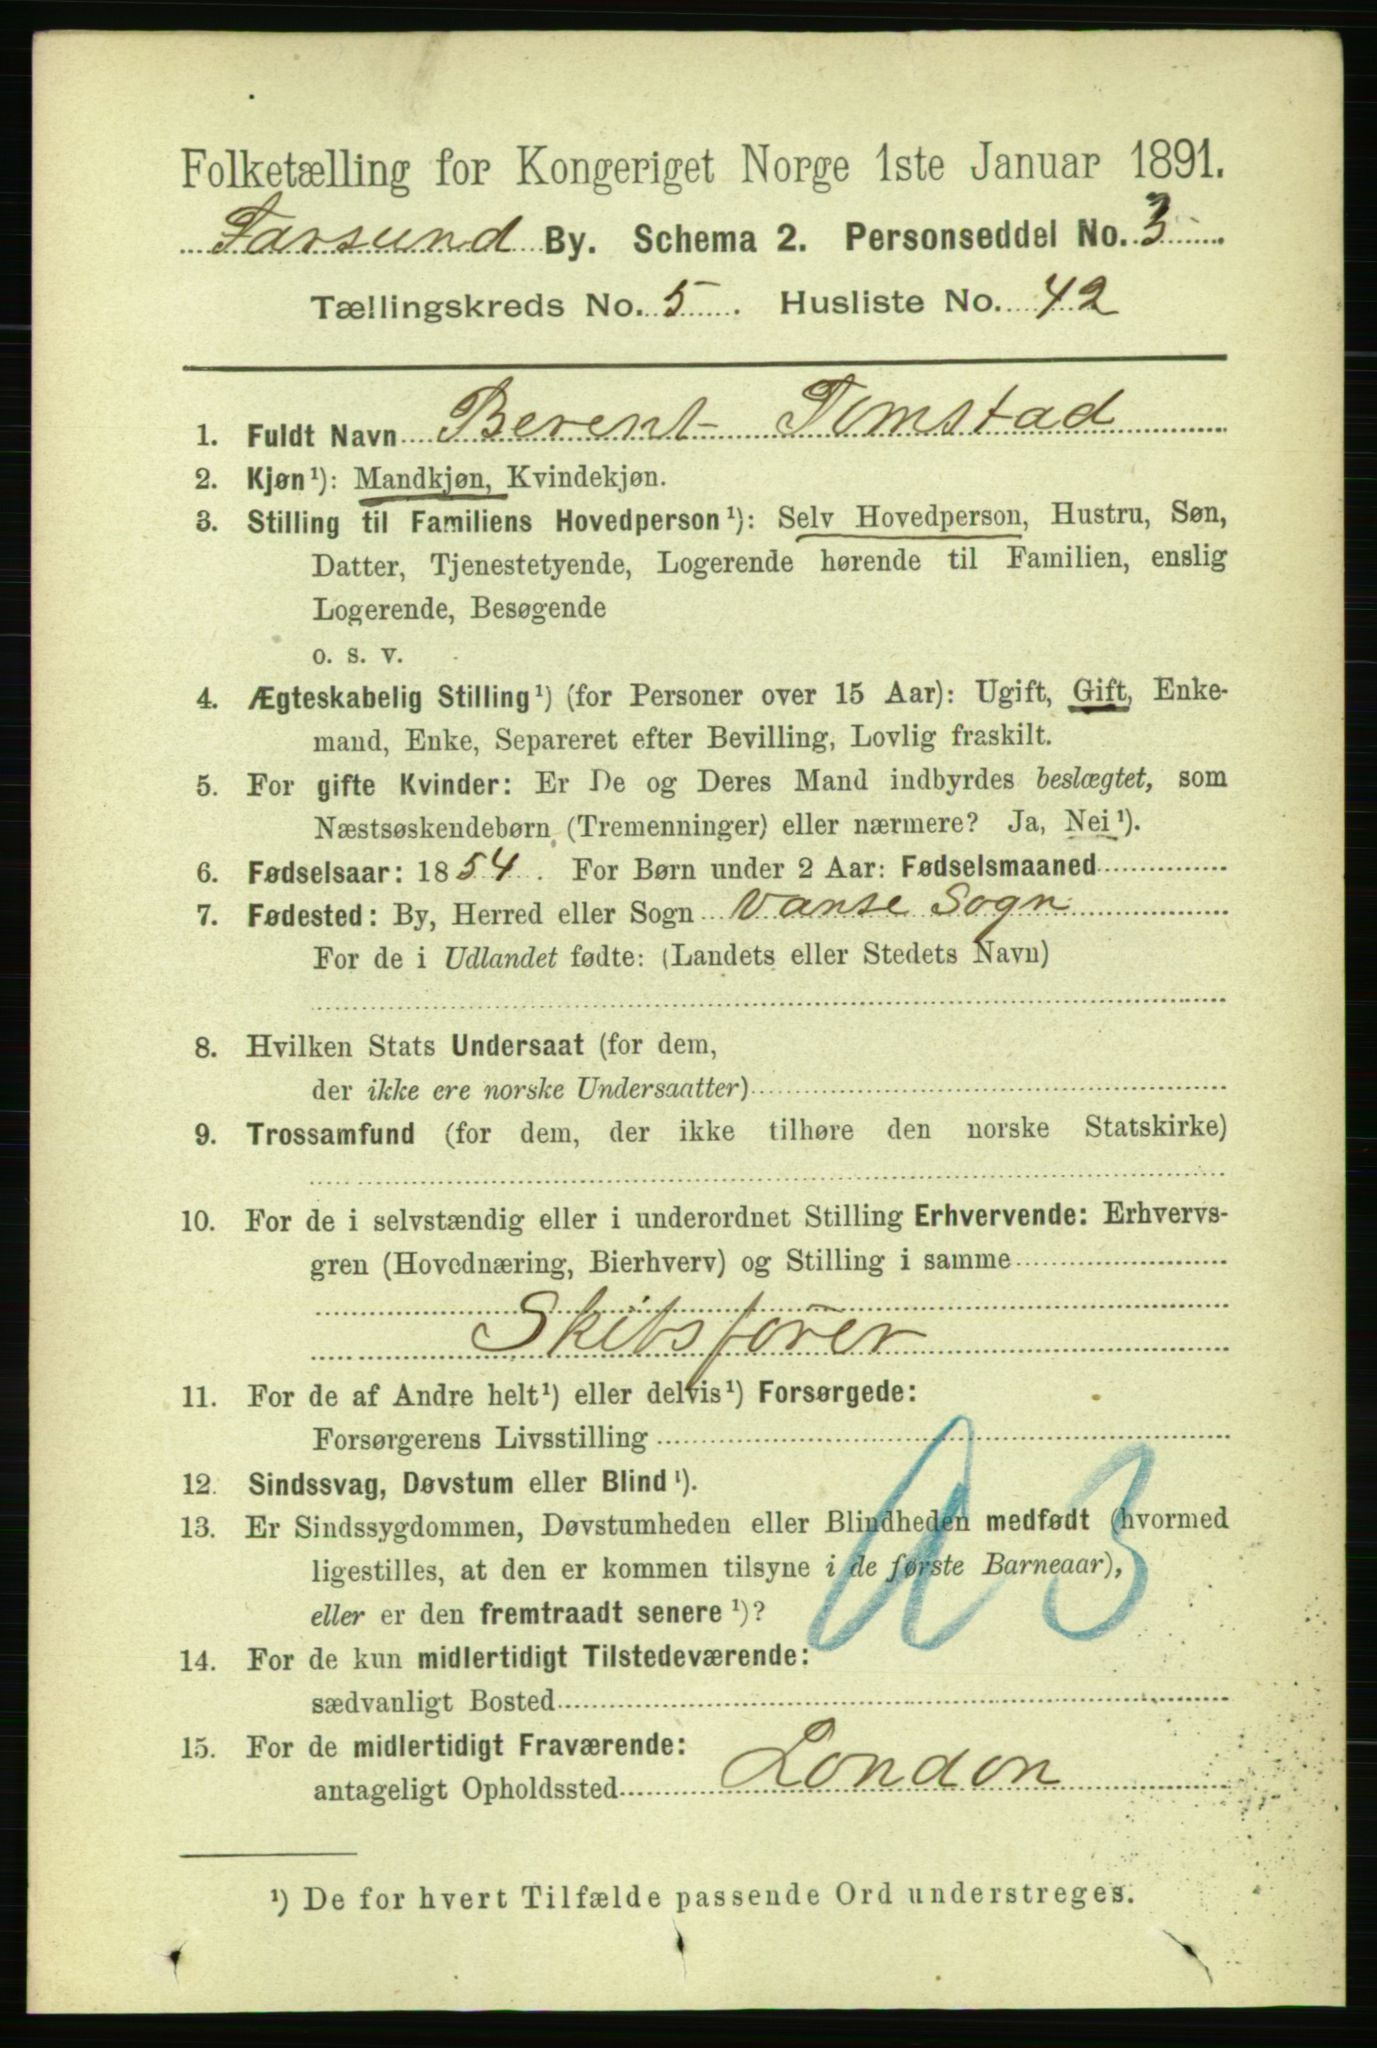 Folketælling for Kongeriget Norge 1ste Januar 1891.
Farsund By. Schema 2. Personseddel No. 3
Tællingskreds No. 5. Husliste No. 42
1. Fuldt Navn Berent Tomstad
2. Kjøn¹): Mandkjøn, Kvindekjøn.
3. Stilling til Familiens Hovedperson¹): Selv Hovedperson, Hustru, Søn,
Datter, Tjenestetyende, Logerende hørende til Familien, enslig
Logerende, Besøgende
o. s. v.
4. Ægteskabelig Stilling¹) (for Personer over 15 Aar): Ugift, Gift, Enke-
mand, Enke, Separeret efter Bevilling, Lovlig fraskilt.
5. For gifte Kvinder: Er De og Deres Mand indbyrdes beslægtet, som
Næstsøskendebørn (Tremenninger) eller nærmere? Ja, Nei¹).
6. Fødselsaar: 1854. For Børn under 2 Aar: Fødselsmaaned
7. Fødested: By, Herred eller Sogn Vanse Sogn
For de i Udlandet fødte: (Landets eller Stedets Navn)
8. Hvilken Stats Undersaat (for dem,
der ikke ere norske Undersaatter)
9. Trossamfund (for dem, der ikke tilhøre den norske Statskirke)
10. For de i selvstændig eller i underordnet Stilling Erhvervende: Erhvervs-
gren (Hovednæring, Bierhverv) og Stilling i samme
Skibsfører
11. For de af Andre helt¹) eller delvis¹) Forsørgede:
Forsørgerens Livsstilling
12. Sindssvag, Døvstum eller Blind¹).
13. Er Sindssygdommen, Døvstumheden eller Blindheden medfødt (hvormed
ligestilles, at den er kommen tilsyne i de første Barneaar),
eller er den fremtraadt senere¹)?
14. For de kun midlertidigt Tilstedeværende:
sædvanligt Bosted
15. For de midlertidigt Fraværende:
antageligt Opholdssted London
¹) De for hvert Tilfælde passende Ord understreges.